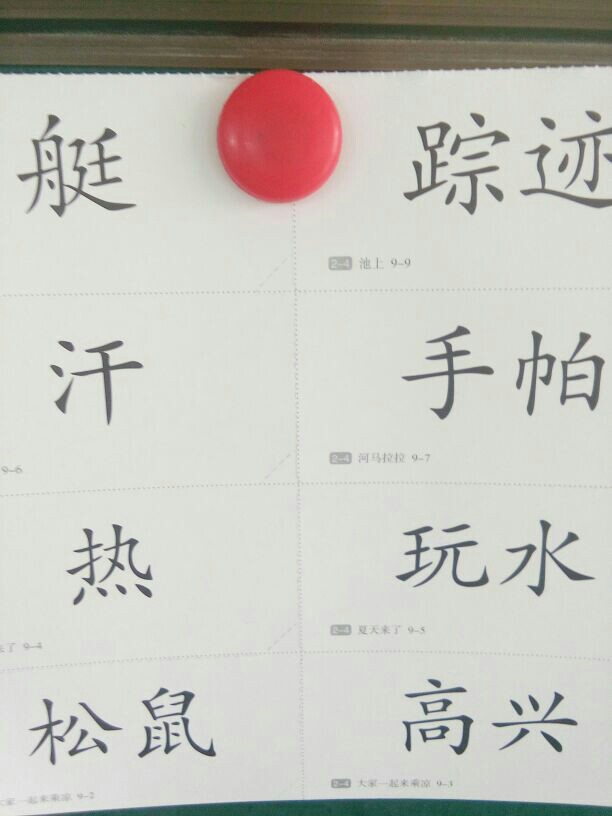 艇
踪迹
2-4 池上 9-9
汗
手帕
9-6
2-4 河马拉拉 9-7
热
玩水
来了 9-4
2-4 夏天来了 9-5
松鼠
高兴
大家一起来乘凉 9-2
2-4 大家一起来乘凉 9-3